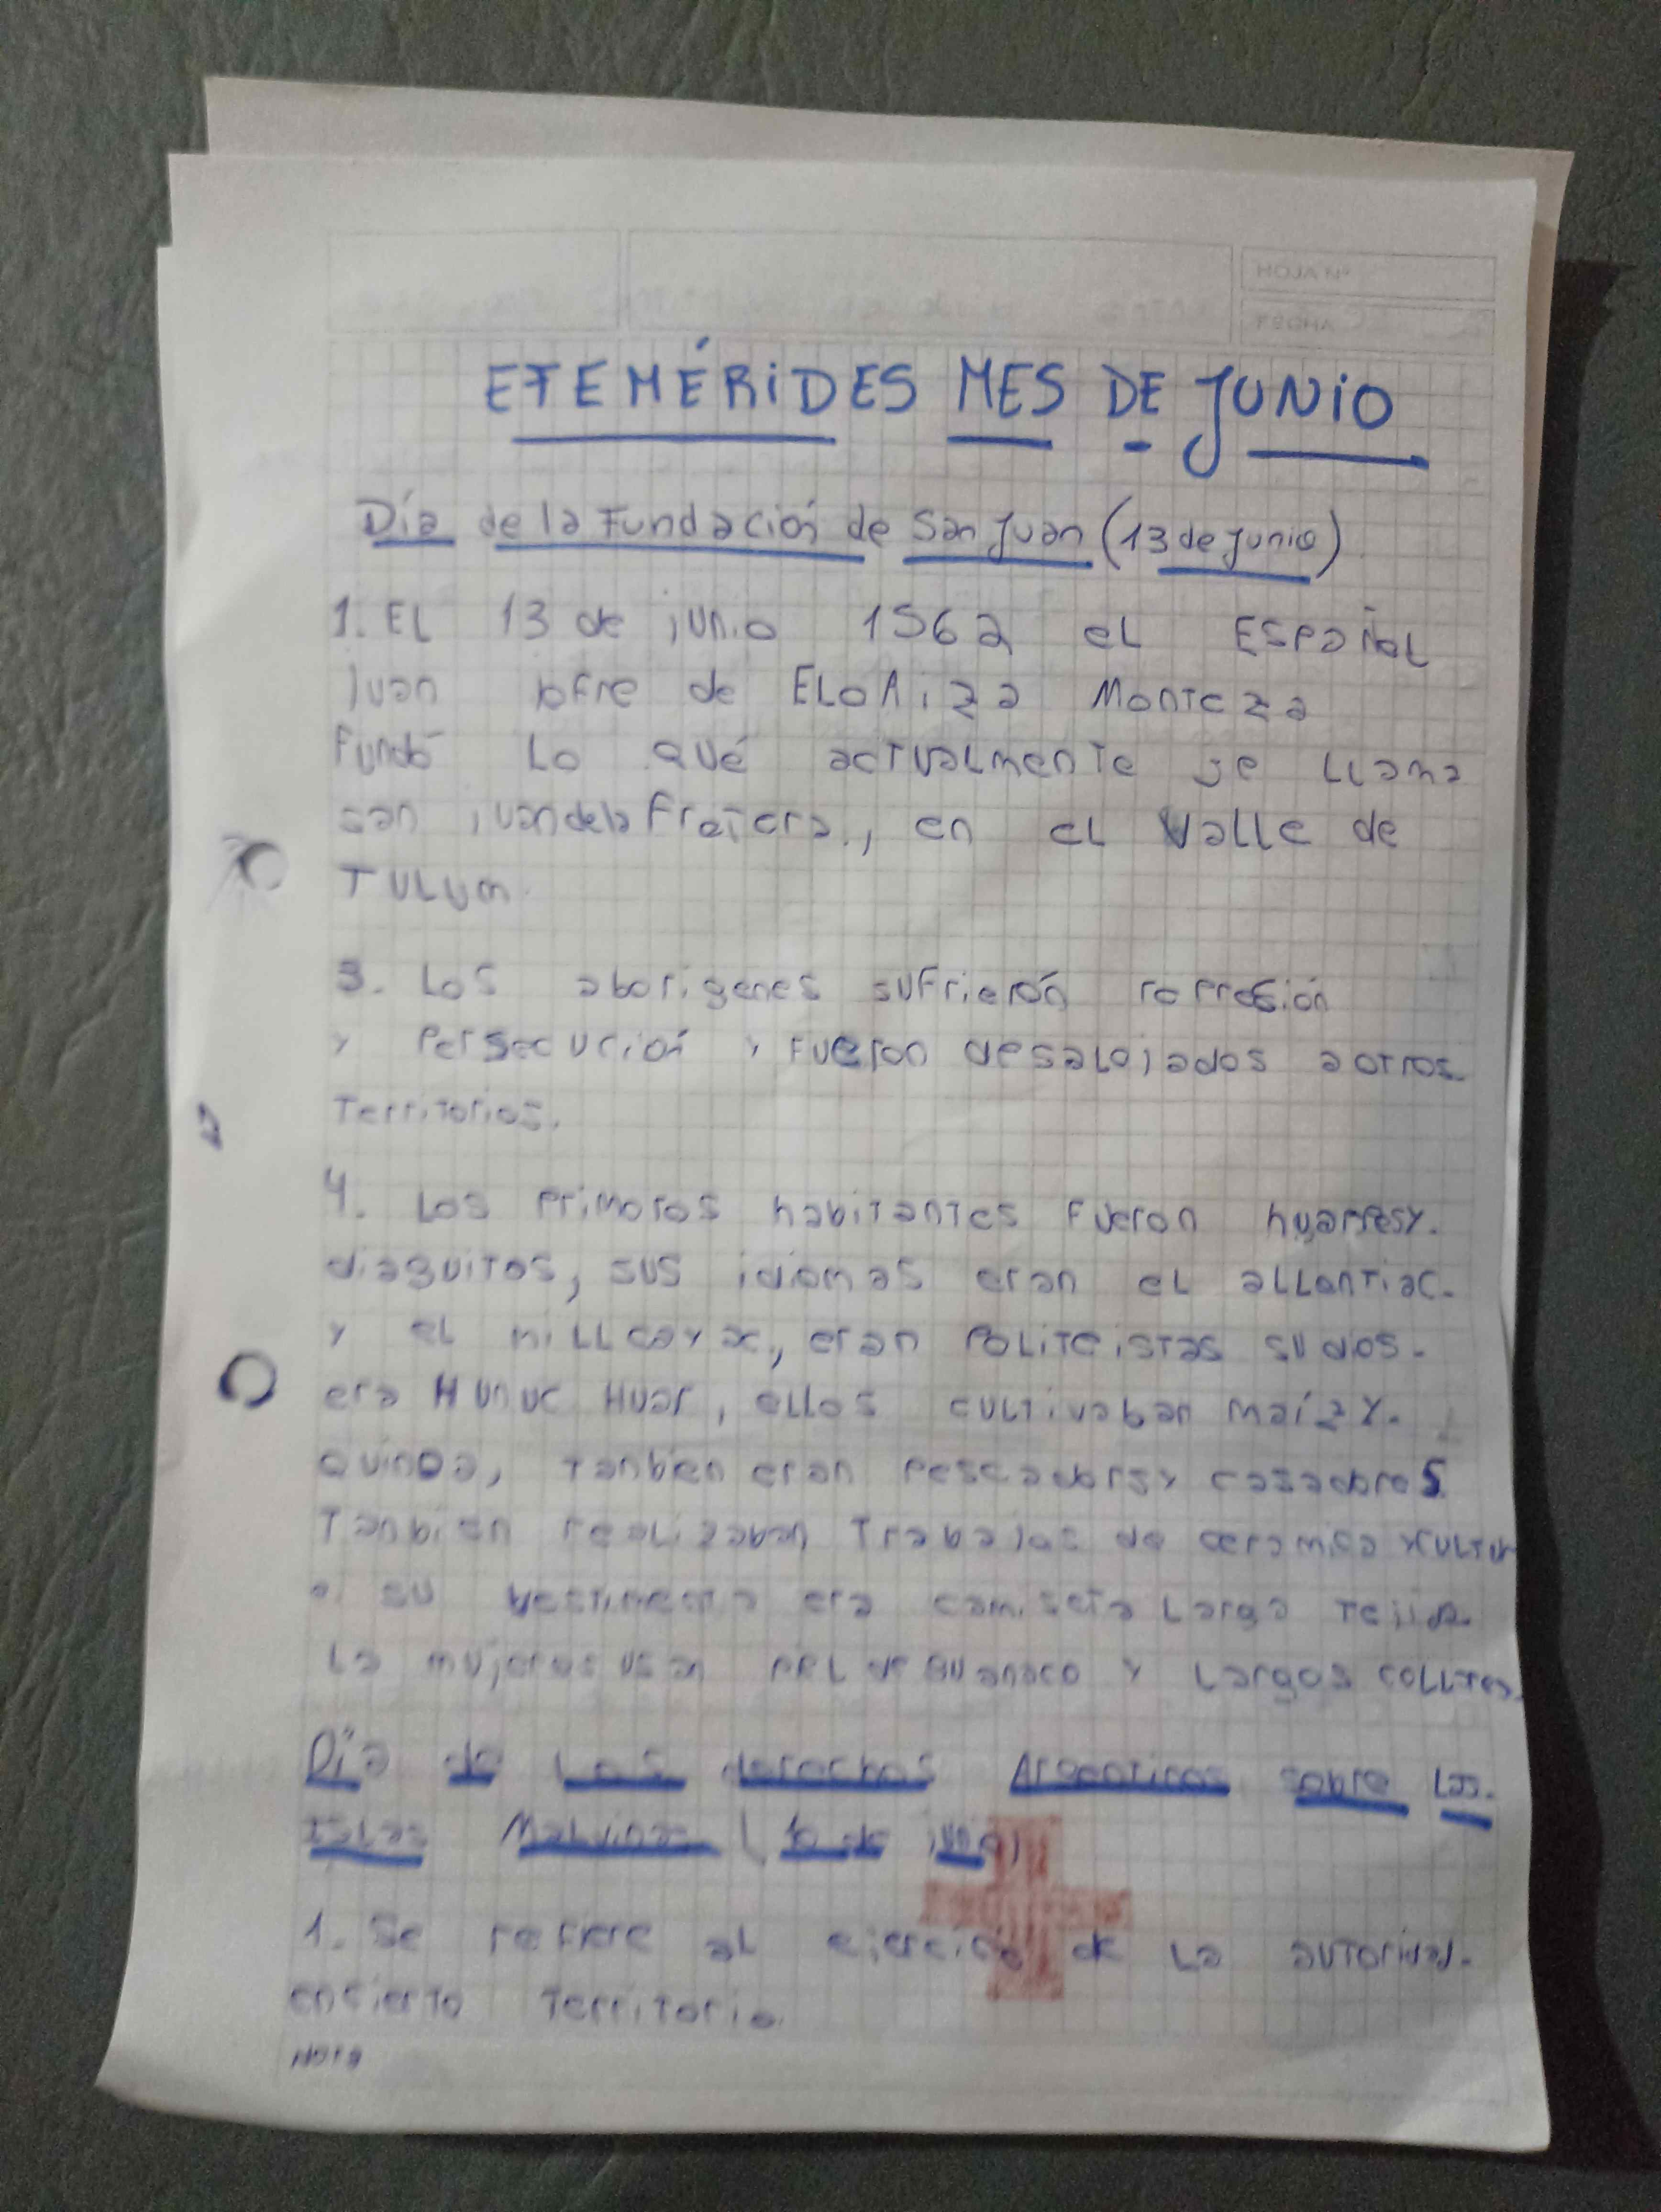 HOJA Nº
FECHA
EFEMÉRIDES MES DE JUNIO
Día de la Fundación de San Juan (13 de junio)
1. EL 13 de junio 1562 eL ESPañoL
Juan jofre de ELOAiza Monteza
Fundó Lo qué actuaLmente se LLama
san juandela Frotera., en eL Valle de
TULUm.
3. Los aborigenes sufrierón ropresión
y Persecución y Fueron desaLojados a otros
Territorios.
4. Los Primoros habitantes Fueron huarpesy.
diaguitos, sus idiomas eran eL aLLantiac.
y eL miLLcayac, eran PoLiteistas su dios.
era Hunuc Huar, eLLos cuLtivaban maíz y.
quinoa, tanbien eran Pescadorsy casadores
Tanbien reaLizaban Trabajos de ceramica yCULTUR
a. su bestimenta era camiseta Larga Tejida.
La mujeres usan PieL de guanaco y Largos
Día de Los derechos Argentinos sobre Las.
Islas MaLvinas (10 de junio)
1. Se refiere aL ejercicio de La autoridad.
ensierto Territorio.
NOTA